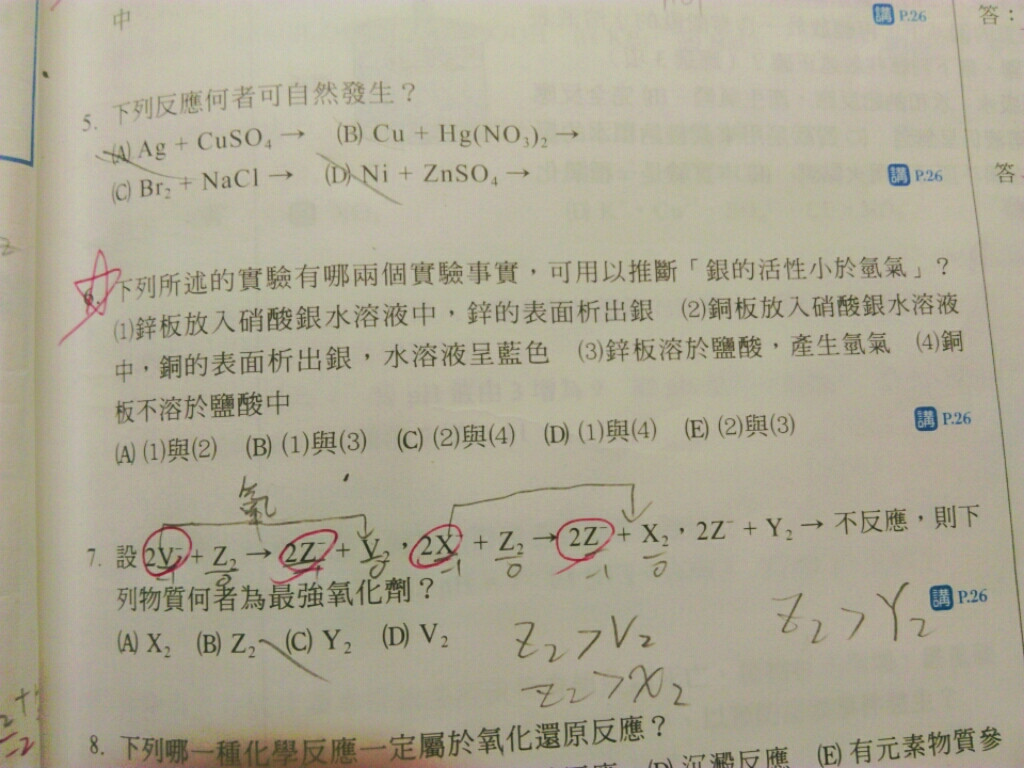 中
講 P.26 答：
5. 下列反應何者可自然發生？
(A) Ag + CuSO₄ → (B) Cu + Hg(NO₃)₂ →
(C) Br₂ + NaCl → (D) Ni + ZnSO₄ → 講 P.26 答
下列所述的實驗有哪兩個實驗事實，可用以推斷「銀的活性小於氫氣」？
(1)鋅板放入硝酸銀水溶液中，鋅的表面析出銀 (2)銅板放入硝酸銀水溶液
中，銅的表面析出銀，水溶液呈藍色 (3)鋅板溶於鹽酸，產生氫氣 (4)銅
板不溶於鹽酸中
(A) (1)與(2) (B) (1)與(3) (C) (2)與(4) (D) (1)與(4) (E) (2)與(3) 講 P.26
氧
7. 設 2V⁻ + Z₂ → 2Z⁻ + V₂，2X⁻ + Z₂ → 2Z⁻ + X₂，2Z⁻ + Y₂ → 不反應，則下
-1 0 -1 0 -1 0 -1 0
列物質何者為最強氧化劑？ 講 P.26
(A) X₂ (B) Z₂ (C) Y₂ (D) V₂
Z₂ > V₂ Z₂ > Y₂
Z₂ > X₂
8. 下列哪一種化學反應一定屬於氧化還原反應？
反應 (D) 沉澱反應 (E) 有元素物質參